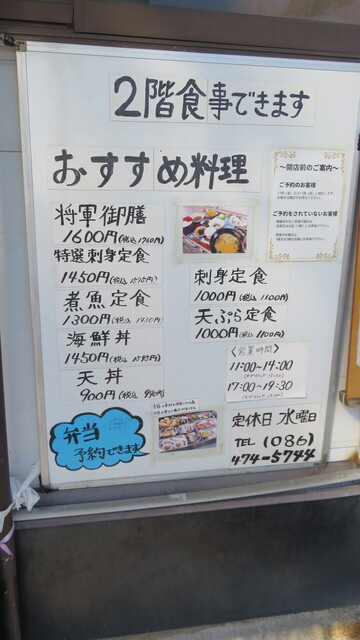 2階食事できます
おすすめ料理
～開店前のご案内～
ご予約のお客様
ご予約をされていないお客様
将軍御膳
1600円(税込1760円)
特選刺身定食
1450円(税込1595円)
煮魚定食
1300円(税込1430円)
海鮮丼
1450円(税込1595円)
天丼
900円(税込990円)
刺身定食
1000円(税込1100円)
天ぷら定食
1000円(税込1100円)
〈営業時間〉
11:00~14:00
17:00~19:30
弁当
予約できます
定休日 水曜日
TEL (086)
474-5744